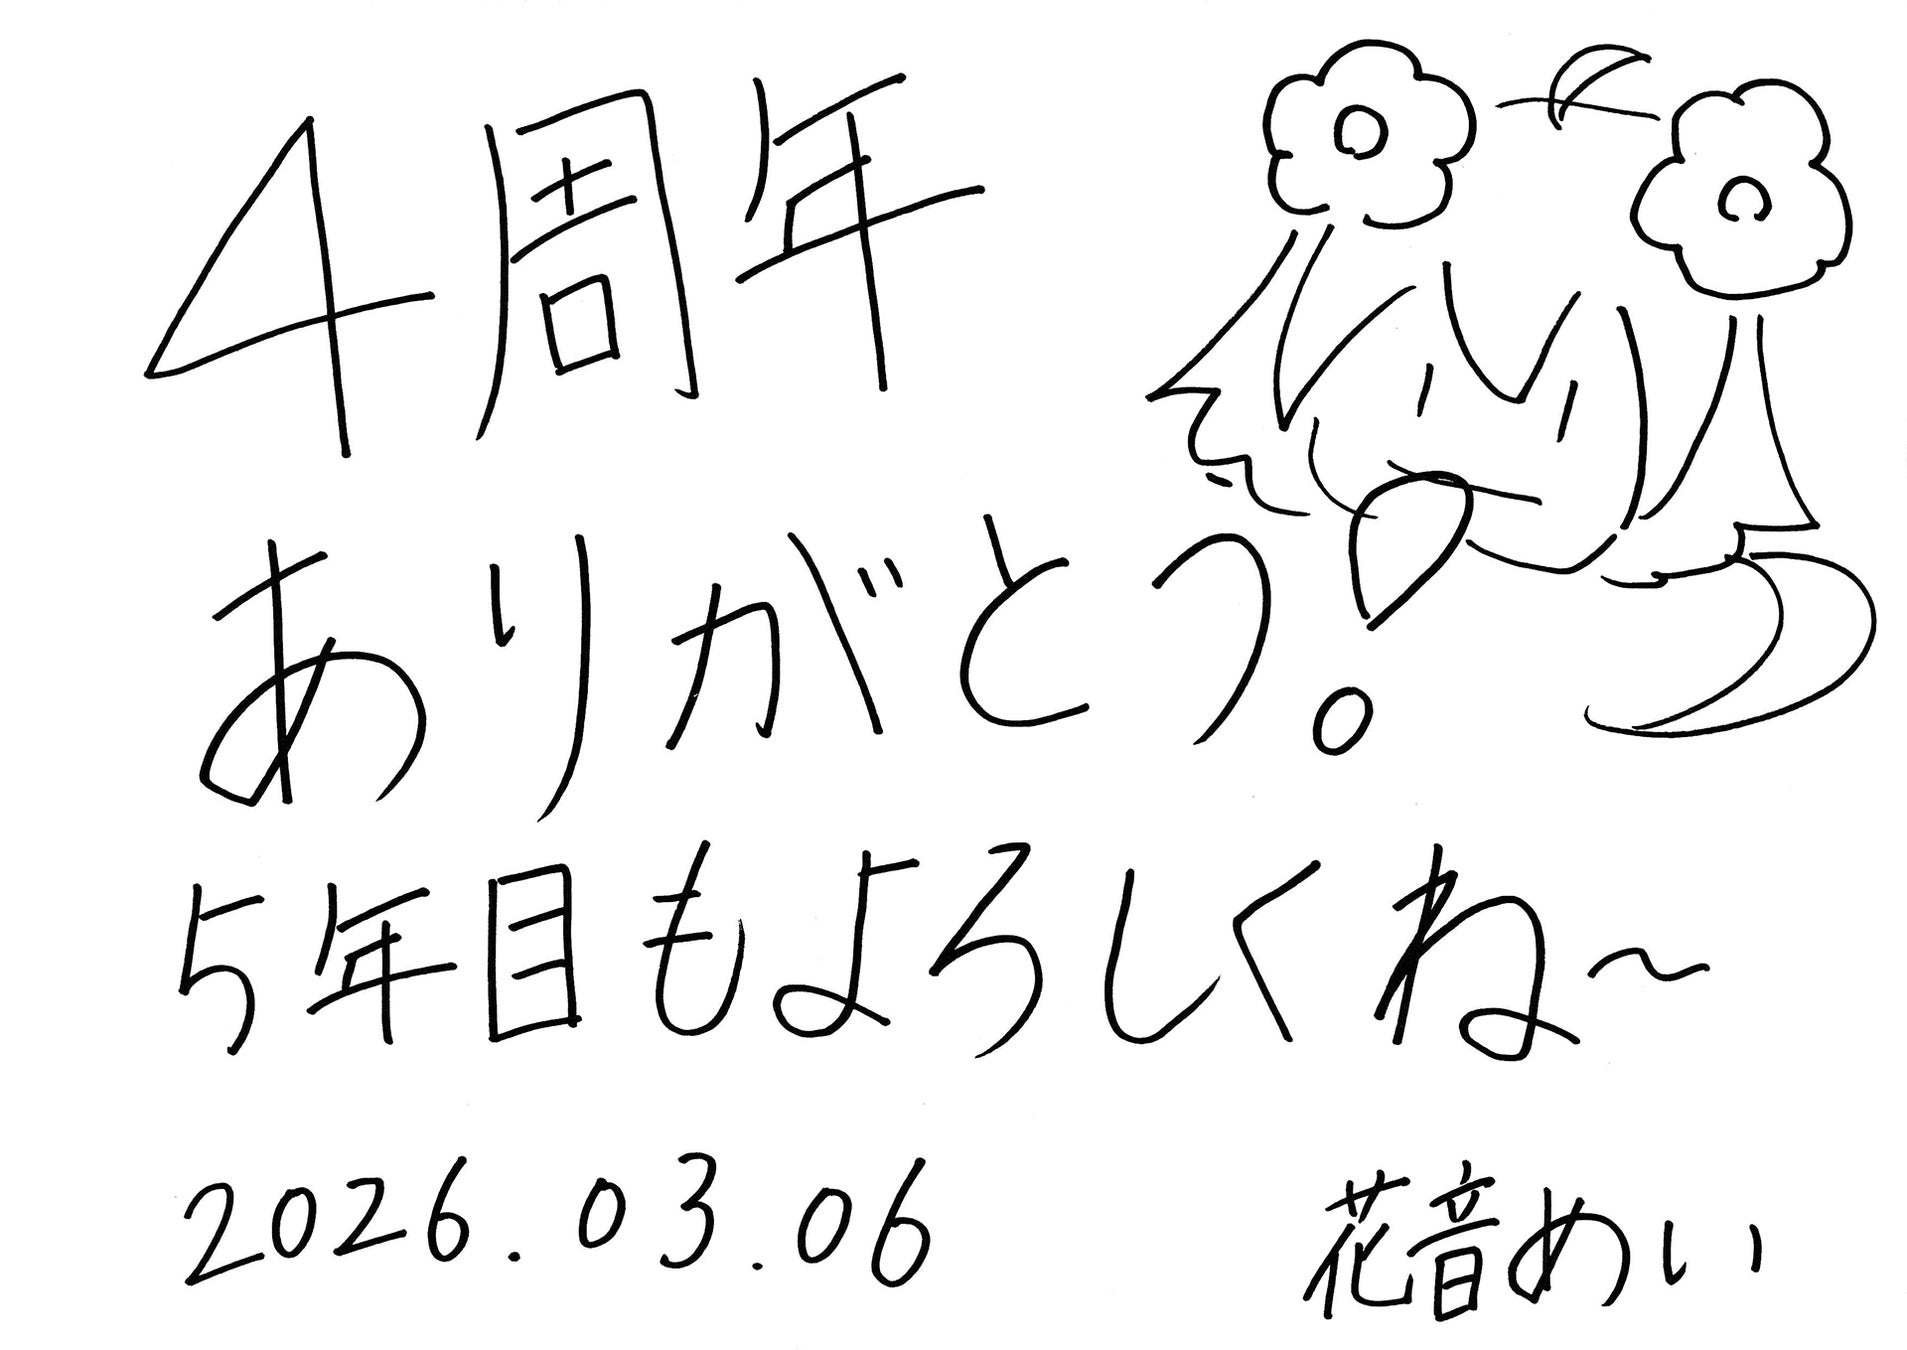 4周年
ありがとう。
5年目もよろしくね～
2026.03.06
花音めい